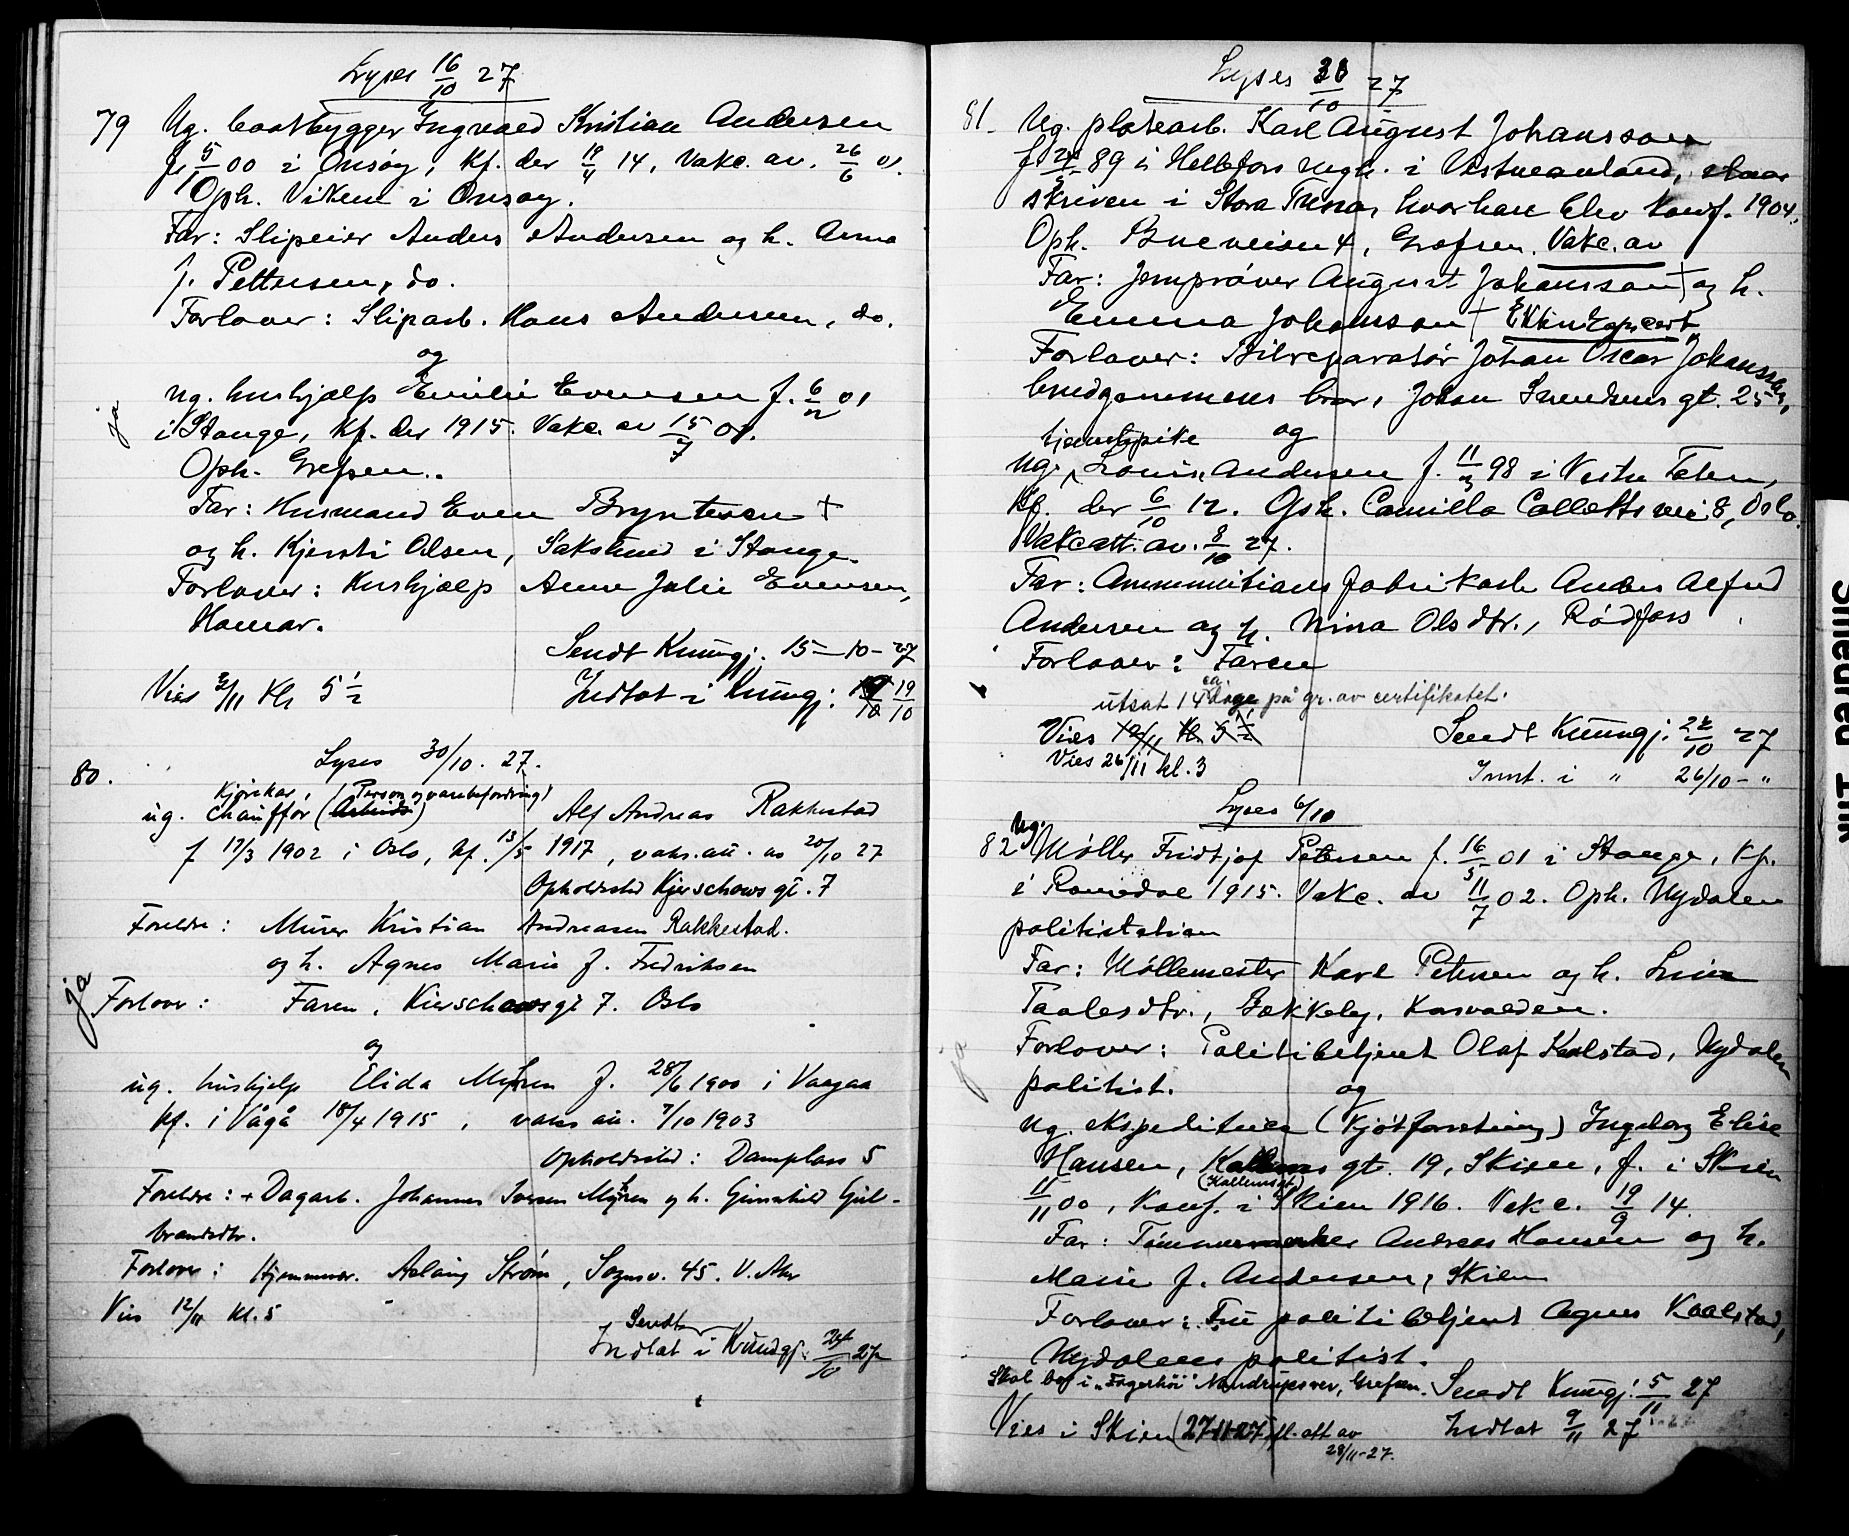 Lyses 16/10 27
79 Ug. baatbygger Ingvald Kristian Andersen
f. 5/1 00 i Onsøy, kf. der 19/4 14, vakc. av. 26/6 01.
Oph. Viken i Onsøy.
Far: Sliperier Anders Andersen og h. Anna
f. Pettersen, do.
Forlover: Sliparb. Hans Andersen, do.
og
ug. hushjælp Emilie Evensen f. 6/2 01
ja
i Stange, kf. der 1915. Vakc. av 15/7 01.
Oph. Grefsen.
Far: Husmand Even Bryntesen +
og h. Kjersti Olsen, Sakslund i Stange.
Forlover: Hushjælp Anne Julie Evensen,
Hamar.
Sendt Kunngj. 15-10-27
Vies 3/11 Kl 5 1/2 Indtat i Kunngj: 19/10 19/10
80. Lyses 30/10. 27.
Kjørekar, (Person og varebefordring)
ug. chauffør Alf Andreas Rakkestad
f 17/3 1902 i Oslo, kf. 13/5 1917, vaks. att. av 20/10 27
Opholdssted Kjerschows gt. 7
Foreldre: Murer Kristian Andreasen Rakkestad.
og h. Agnes Marie f. Fredriksen
ja
Forlover: Faren, Kierschowsgt 7. Oslo
og
ug. hushjelp Elida Myhren f. 28/6 1900 i Vaagaa
kf. i Vågå 18/4 1915, vaks att. 7/10 1903
Opholdssted: Damplass 5
Foreldre: + Dagarb. Johannes Iversen Myhren og h. Gunnhild Gul-
brandsdtr.
Forlover: Hjemmevær. Aslaug Strøm, Sognsv. 45. V. Aker
Vies 12/11 kl. 5
Sendt
Indtat i Kundgj. 24/10 27
Lyses 30/10 27
81. Ug. platearb. Karl August Johansson
f. 89 i Hellefors i Vestmanland,
skriven i Stora Tuna, hvor han blev konf. 1904.
Oph. 4, Grefsen. Vakc. av
Far: Jernprøver August Johansson + og h.
Emma Johansson +
Forlover: Bilreparatør Johan Oscar Johansson,
brudgommens bror, Johan Svendsens gt. 25
tjenestepike og
ug. Lovise Andersen f. 11/3 98 i Vestre Toten,
kf. der 6/10 12. Oph. Camilla Colletts vei 8, Oslo.
Vakcatt. av. 8/10 27.
Far: Ammunitions fabrikarb. Anders Alfred
Andersen og h. Nina Olsdtr., Rødfoss
Forlover: Faren
utsat ca. 14 dage på gr. av certifikatet.
Vies 12/11 kl. 5 1/2 Sendt Kunngj. 22/10 27
Vies 26/11 kl. 3 Innt. i " 26/10 - "
Lyses 6/10
82 Ug. Møller Fridtjof Petersen f. 16/5 01 i Stange, kf.
i Romedal 1915. Vakc. av 11/7 02. Oph. Nydalen
politistation
Far: Møllemester Karl Petersen og h. Lina
Paalesdtr., Bekkely, Korsvolden.
Forlover: Politibetjent Olaf Kaalstad, Nydalen
ja
politist. og
ug. ekspeditrice (Kjøtforretning) Ingeborg Elise
Hansen, Kallums gt. 19, Skien, f. i Skien
(Kallemsgt)
11/11 00, konf. i Skien 1916. Vakc. 19/9 14.
Far: Tømmermerker Andreas Hansen og h.
Marie f. Andersen, Skien
Forlover: Fru politibetjent Agnes Kaalstad,
Nydalens politist.
Skal bo i "Fagerhøi" Nandrupsvei, Grefsen. Sendt Kunngj. 5/11 27
Vies i Skien (27-11-27) fl. att av Indtat 9/11 27
28/11-27.